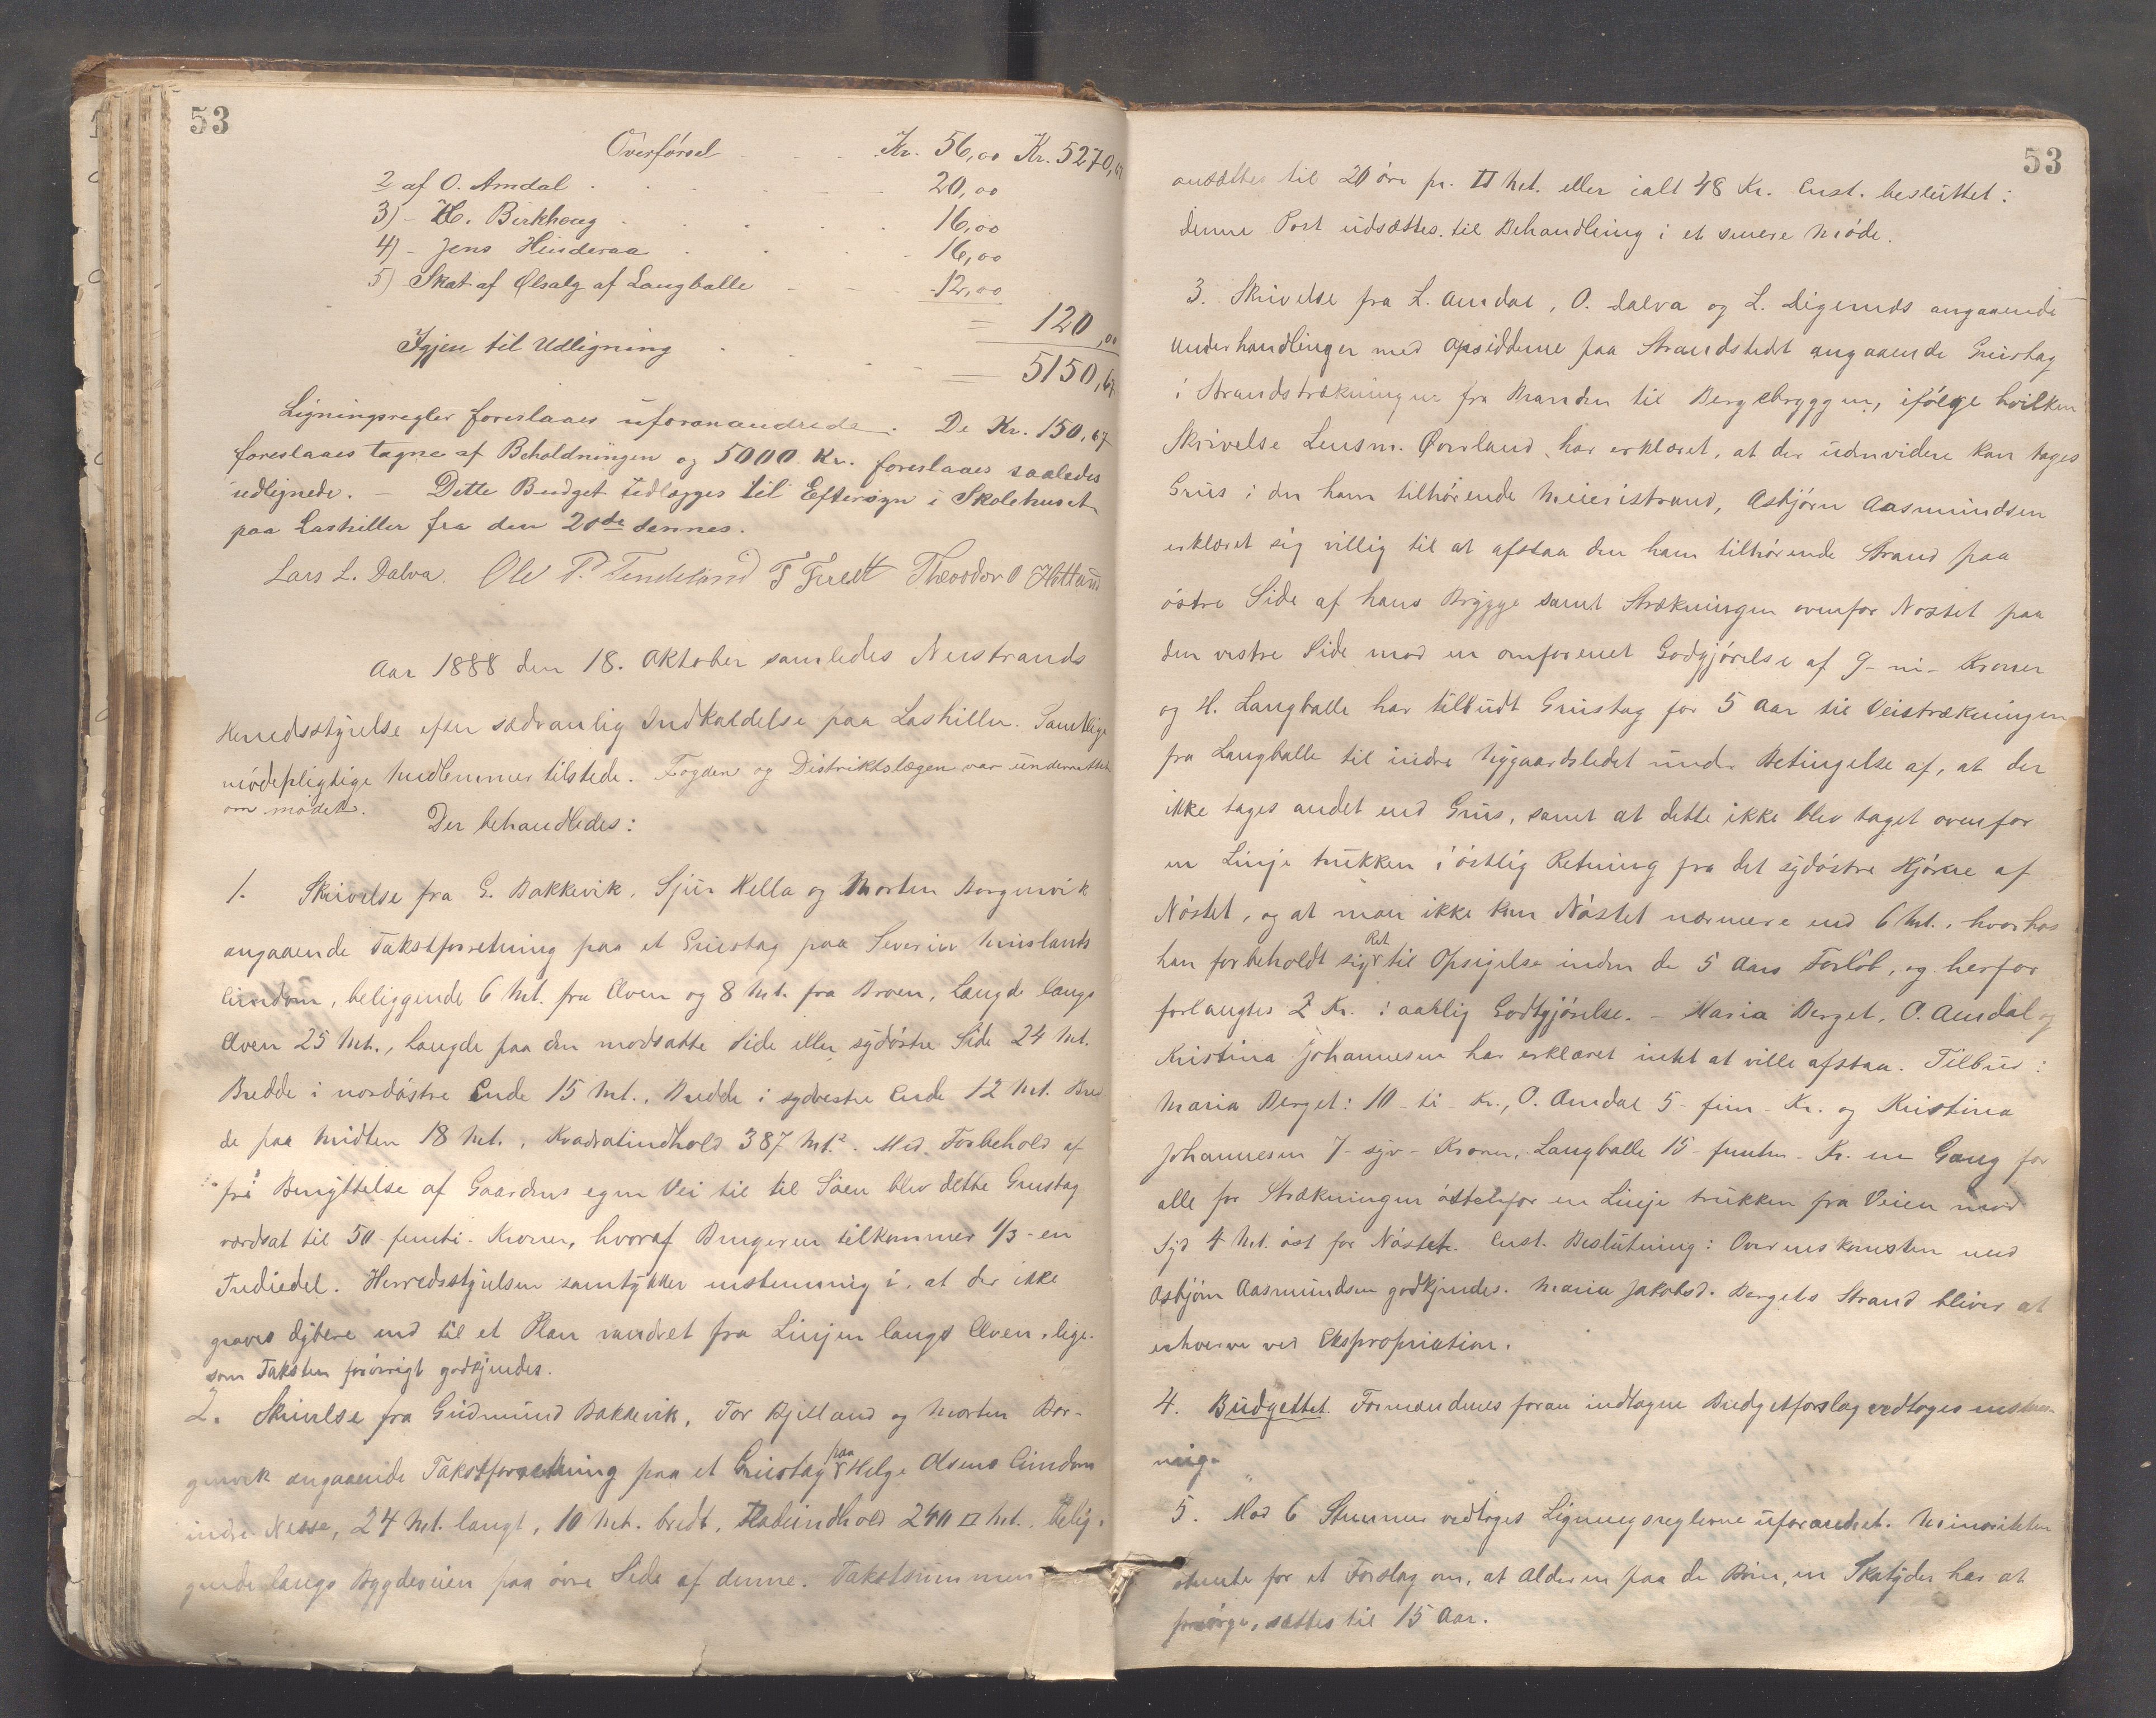 53
Overførsel Kr. 56,00 Kr. 5270,67
2 af O. Amdal 20,00
3) - H. Birkhoug 16,00
4) - Jens Hinderaa 16,00
5) Skat af Ølsalg af Langballe 12,00
= 120,00
Igjen til Udligning = 5150,67
Ligningsregler foreslaaes uforanandrede. De Kr. 150,67
foreslaaes tagne af Beholdningen og 5000 Kr. foreslaaes saaledes
udlignede. - Dette Budget udlægges til Eftersyn i Skolehuset
paa Lashiller fra den 20de dennes.
Lars L. Dalva. Ole P. Tendeland T Theodor O Hetland
Aar 1888 den 18. Oktober samledes Nerstrands
Herredsstyrelse efter sædvanlig Indkaldelse paa Lashiller. Samtlige
mødepligtige Medlemmer tilstede. Fogden og Distriktslægen var underrettet
om mødet.
Der behandledes:
1. Skrivelse fra G. Bakkevik, Sjur Hella og Morten Borgenvik
angaaende Takstforretning paa et Grustag paa Severin
Eiendom, beliggende 6 Met. fra Elven og 8 Met. fra Broen, Længde langs
Elven 25 Met., Længde paa den modsatte Side eller sydøstre Side 24 Met.
Bredde i nordøstre Ende 15 Met., Bredde i sydvestre Ende 12 Met. Bred
de paa Midten 18 Met., Kvadratindhold 387 Mt². Med Forbehold af
fri Benyttelse af Gaardens egen Vei til til Søen blev dette Grustag
værdsat til 50 - femti - Kroner, hvoraf Brugeren tilkommer 1/3 - en
Trediedel. Herredsstyrelsen samtykker enstemmig i, at der ikke
graves dybere end til et Plan vandret fra Linjen langs Elven, lige-
som Taksten forøvrigt godkjendes.
2. Skrivelse fra Gudmund Bakkevik, Tor Bjelland og Morten Bor-
genvik angaaende Takstforretning paa et Grustag paa Helge Olsens Eiendom
indre Nesse, 24 Met. langt, 10 Met. bredt, Fladeindhold 240 □ Met., belig-
gende langs Bygdeveien paa øvre Side af denne. Takstsummen
53
ansættes til 20 øre pr. □ Met. eller ialt 48 Kr. Enst. besluttet:
denne Post udsættes til Behandling i et senere Møde.
3. Skrivelse fra L. Amdal, O. Dalva og L. angaaende
Underhandlinger med Opsidderne paa Strandstedet angaaende Grustag
i Strandstrækningen fra Branden til Bergebryggen, ifølge hvilken
Skrivelse Lensm. Øverland har erklæret, at der uden videre kan tages
Grus i den ham tilhørende Meieristrand, Asbjørn Aasmundsen
erklæret sig villig til at afstaa den ham tilhørende Strand paa
østre Side af hans Brygge samt Strækningen ovenfor Nøstet paa
den vestre Side mod en omforenet Godgjørelse af 9 - ni - Kroner
og H. Langballe har tilbudt Grustag for 5 Aar til Veistrækningen
fra Langballe til indre Nygaardsledet under Betingelse af, at der
ikke tages andet end Grus, samt at dette ikke blev taget ovenfor
en Linje trukken i østlig Retning fra det sydøstre Hjørne af
Nøstet, og at man ikke kom Nøstet nærmere end 6 Met., hvorhos
han forbeholdt sig Ret til Opsigelse inden de 5 Aars Forløb, og herfor
forlangtes 2 Kr. i aarlig Godtgjørelse. - Maria Berget, O. Amdal og
Kristina Johannesen har erklæret intet at ville afstaa. Tilbud:
Maria Berget: 10 - ti - Kr., O. Amdal 5 - fem - Kr. og Kristina
Johannesen 7 - syv - Kroner, Langballe 15 - femten - Kr. en Gang for
alle for Strækningen østenfor en Linje trukken fra Veien mod
Syd 4 Met. øst for Nøstet. Enst. Beslutning: Overenskomsten med
Asbjørn Aasmundsen godkjendes. Maria Jakobsd. Bergets Strand bliver at
erhverve ved Ekspropriation.
4. Budgettet. Formændenes foran indtagne Budgetforslag vedtoges enstem-
mig.
5. Mod 6 Stemmer vedtoges Ligningsreglerne uforandret. Minoriteten
stemte for et Forslag om, at Alderen paa de Børn, en Skatyder har at
forsørge, sættes til 15 Aar.